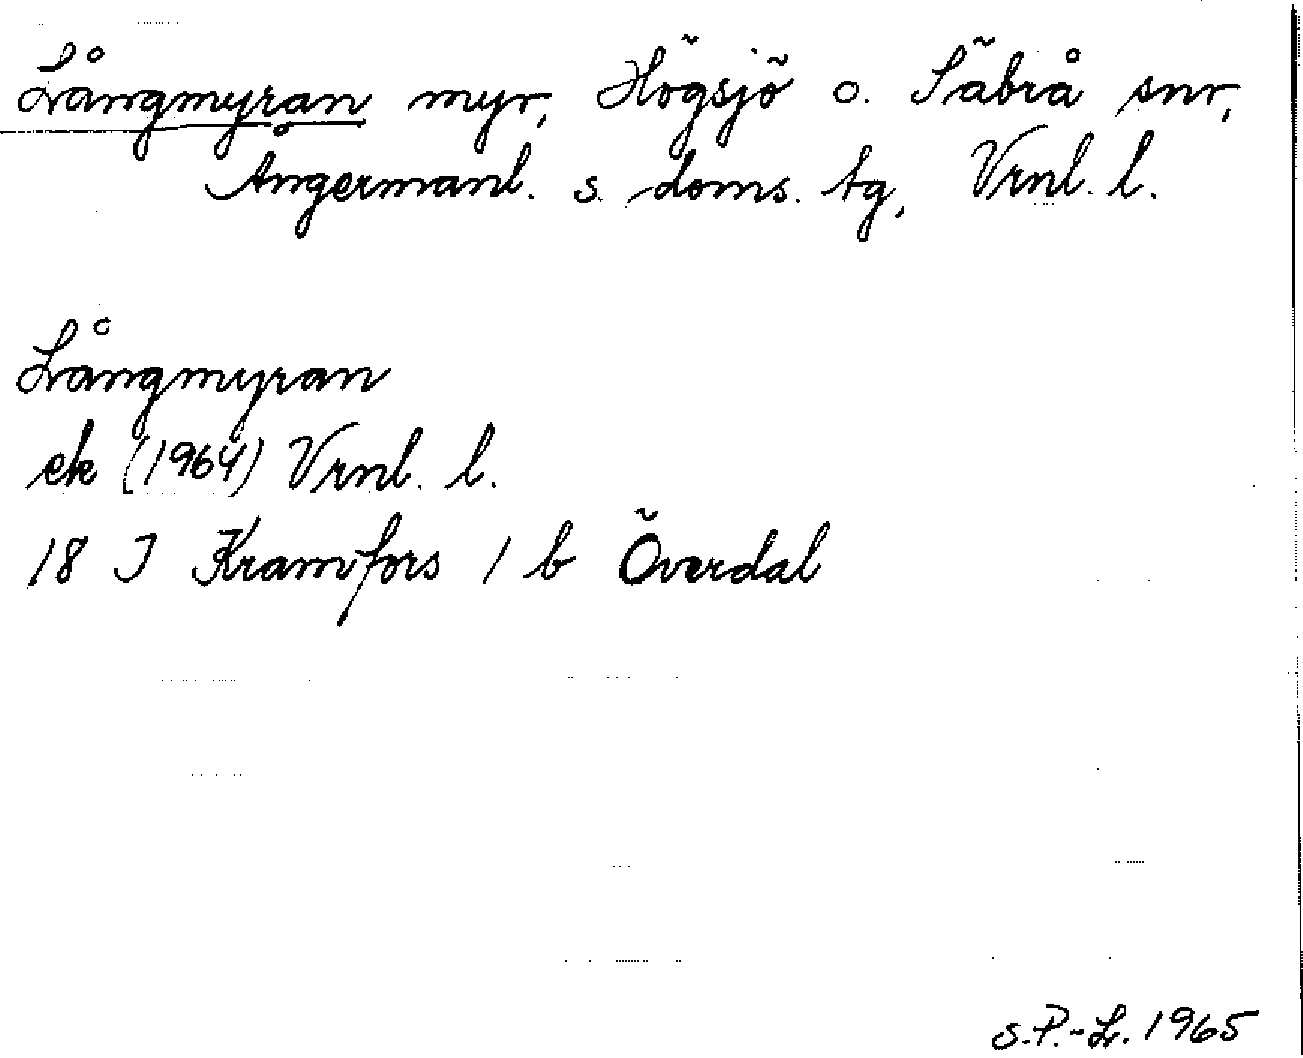 Långmyran myr, Högsjö o. Säbrå snr,
Ångermanl. s. doms. tg, Vrnl. l.
Långmyran
ek (1964) Vrnl. l.
18 J Kramfors 1 b Överdal
S.P.-L. 1965